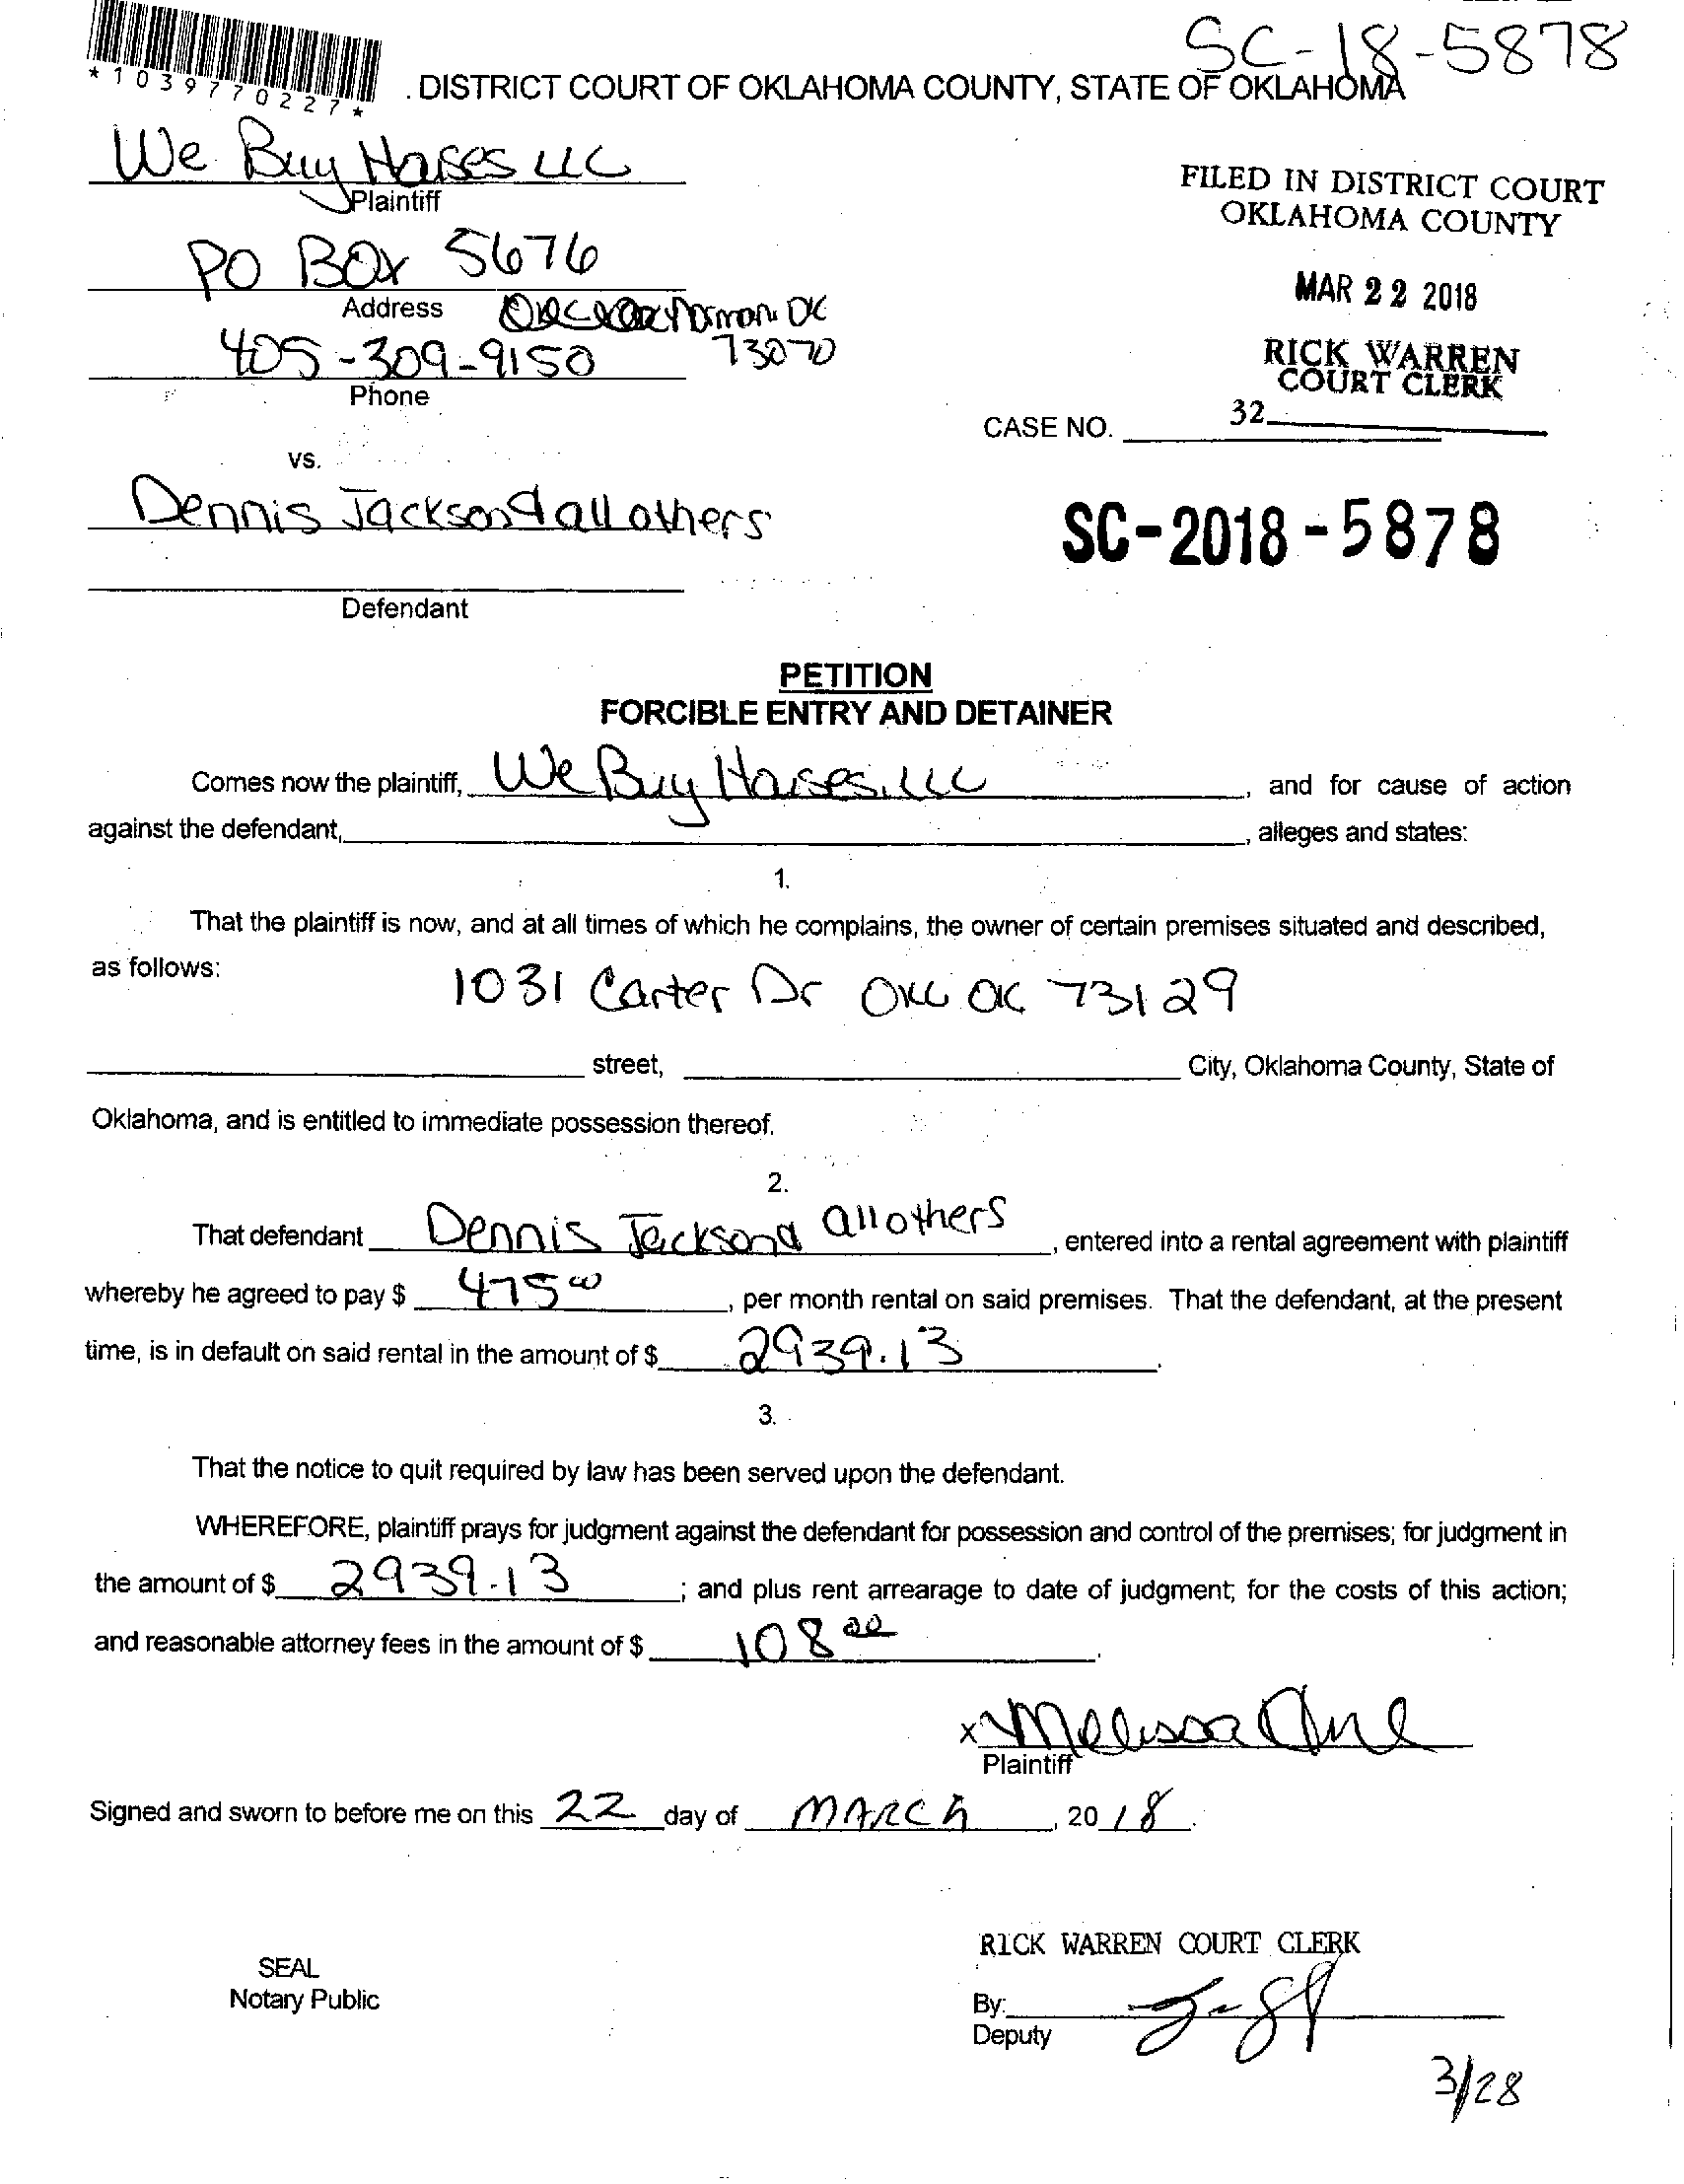 SC-18-5878
*1039770227*
. DISTRICT COURT OF OKLAHOMA COUNTY, STATE OF OKLAHOMA
We Buy Houses LLC
Plaintiff
FILED IN DISTRICT COURT
OKLAHOMA COUNTY
PO BOX 5676
Address
Norman OK
73070
MAR 22 2018
405-309-9150
Phone
RICK WARREN
COURT CLERK
32
CASE NO.
vs.
Dennis Jackson & all others
SC-2018-5878
Defendant
PETITION
FORCIBLE ENTRY AND DETAINER
Comes now the plaintiff, We Buy Houses, LLC, and for cause of action
against the defendant, , alleges and states:
1.
That the plaintiff is now, and at all times of which he complains, the owner of certain premises situated and described,
as follows:
1031 Carter Dr OKC OK 73129
street, City, Oklahoma County, State of
Oklahoma, and is entitled to immediate possession thereof.
2.
That defendant Dennis Jackson & all others, entered into a rental agreement with plaintiff
whereby he agreed to pay $ 475 00, per month rental on said premises. That the defendant, at the present
time, is in default on said rental in the amount of $ 2939.13.
3.
That the notice to quit required by law has been served upon the defendant.
WHEREFORE, plaintiff prays for judgment against the defendant for possession and control of the premises; for judgment in
the amount of $ 2939.13; and plus rent arrearage to date of judgment; for the costs of this action;
and reasonable attorney fees in the amount of $ 108 00.
x Melissa
Plaintiff
Signed and sworn to before me on this 22 day of MARCH, 2018.
RICK WARREN COURT CLERK
SEAL
Notary Public
By:
Deputy
3/28